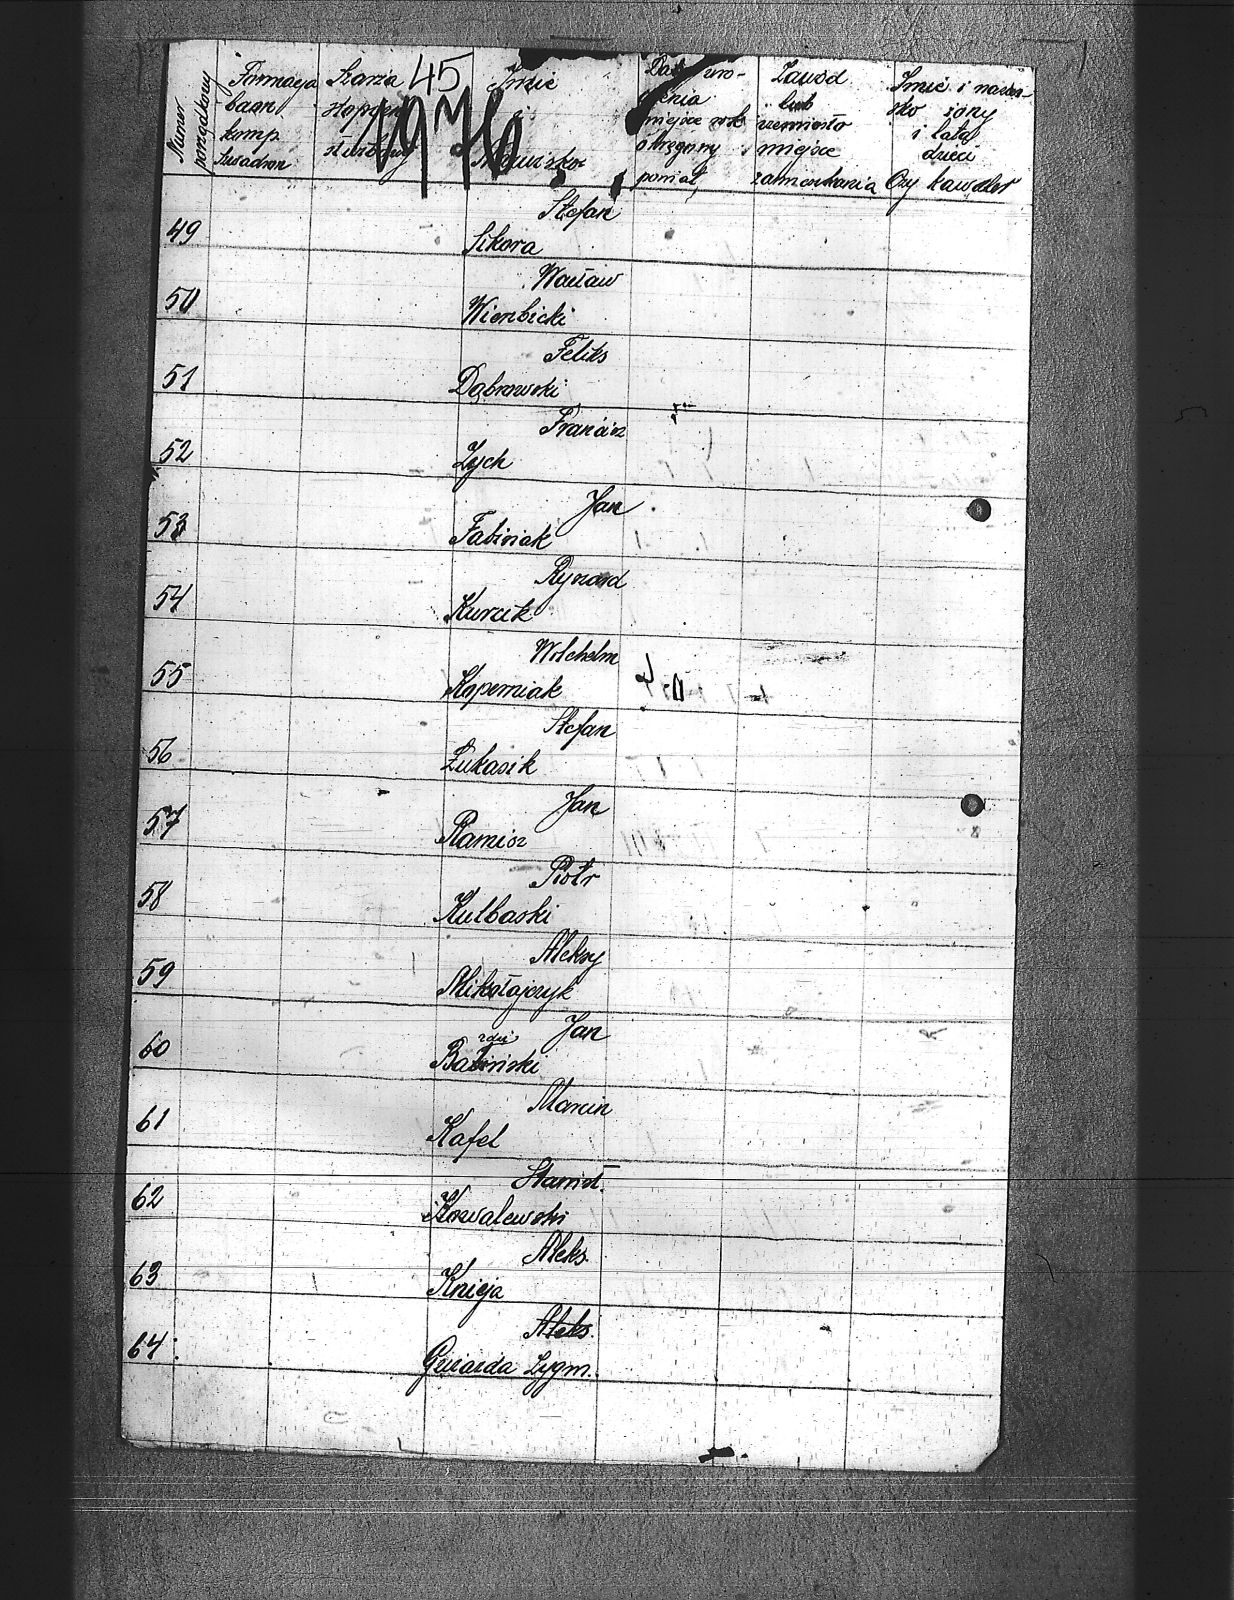 Numer porządkowy
Formacja
baon
komp
szwadron
Szarża
stopień
służbowy
45
976
Imię
i
Nazwisko
Data uro-
dzenia
miejsce rok
okręgowy
powiat
Zawód
lub
rzemiosło
miejsce
zamieszkania
Imię i nazwi-
sko żony
i lata
dzieci
Czy kawaler
Stefan
49 Sikora
Wacław
50 Wierzbicki
Feliks
51 Dąbrowski
Francisz
52 Zych
Jan
53 Fabisiak
Ryszard
54 Kurcik
Wilchelm
55 Koperniak
Stefan
56 Łukasik
Jan
57 Ramisz
Piotr
58 Kulbaski
Aleksy
59 Mikołajczyk
Jan
60 Baziński
Marcin
61 Kafel
Stanisł.
62 Kowalewski
Aleks.
63 Knieja
Aleks.
64. Gwiazda Zygm.